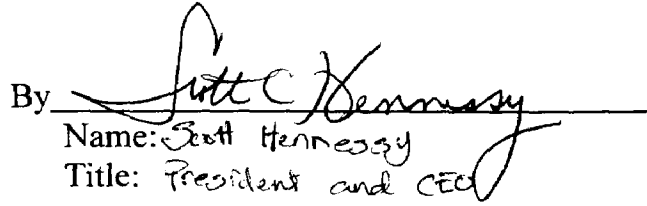 By Scott C Hennessy
Name: Scott Hennessy
Title: President and CEO